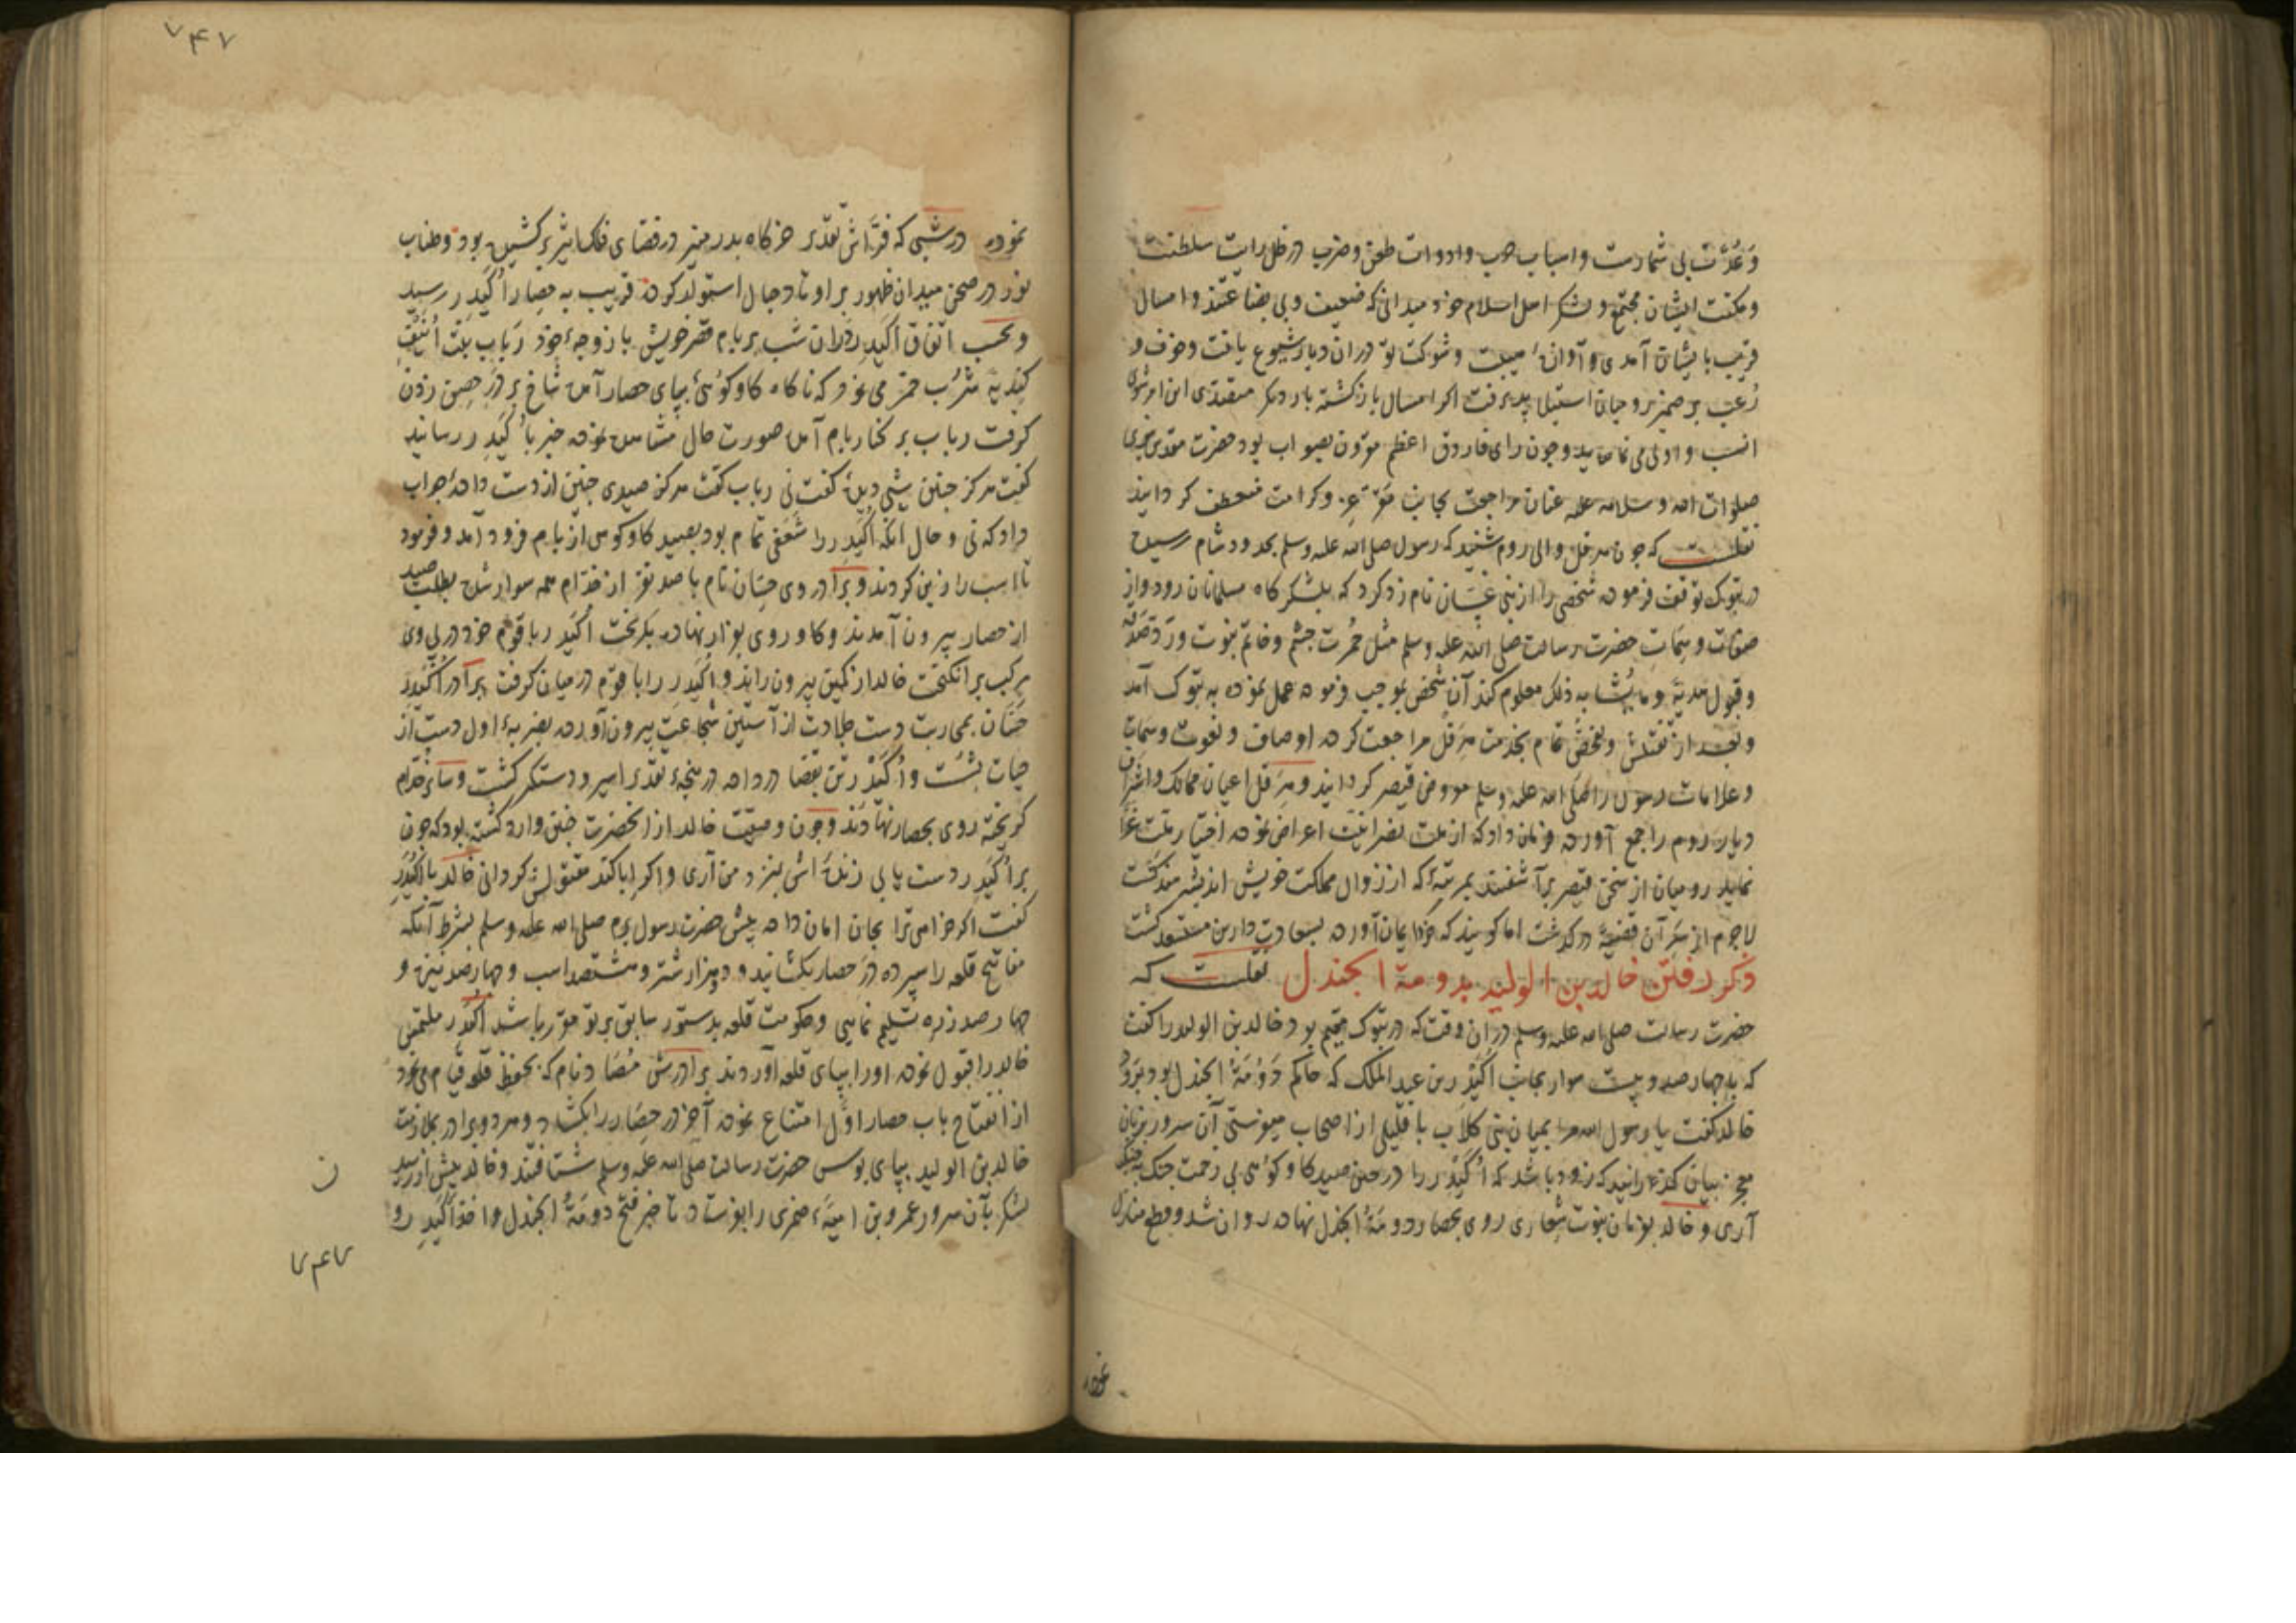 وعُدّت بی شمارست و اسباب حرب و ادوات طعن و ضرب در ظل رایت سلطنت
و مکنت ایشان مجتمع و لشکر اهل اسلام خود میدانی که ضعیف و بی بضاعتند و امسال
قریب بایشان آمدی و آوازه هیبت و شوکت تو در ان دیار شیوع یافت و خوف و
رُعب بر ضمیر و جنان استیلا پذیرفت اکر امسال بازکشته بار دیکر متصدی این امر شوی
انسب و اولی می نماید و چون رای فاروق اعظم مقرون بصواب بود حضرت مقدس نبوی
صلوات الله و سلامه علیه عنان مراجعت بجانب مقرّ عز و کرامت منعطف کردانید
نقلست که چون هرقل والی روم شنید که رسول صلی الله علیه وسلم بحدود شام رسیده
در تبوک توقف فرموده شخصی را از بنی غسّان نام زد کرد که بلشکر کاه مسلمانان رود و از
صفات و سِمَاتِ حضرت رسالت صلی الله علیه وسلم مثل حُمرت چشم و خاتم نبوت و ردّ صَدَقه
و قبول هدیّه و ما یُشابه ذلک معلوم کند آن شخص بموجب فرموده عمل نموده به تبوک آمد
و بعد از تفتیش و تفحّص تمام بخدمت هرقل مراجعت کرده اوصاف و نعوت و سمات
و علامات رسول را صلی الله علیه وسلم معروض قیصر کردانید و هرقل اعیان ممالک و اشراف
دیار روم را جمع آورده فرمان داد که از ملت نصرانیّت اعراض نموده اختیار ملت غرّا
نمایند رومیان از سخن قیصر برآشفتند بمرتبهٔ که از زوال مملکت خویش اندیشه مند کشت
لاجرم از سَر آن قضیّه درکذشت اما کویند که خود ایمان آورده بسعادت دارین مستسعد کشت
ذکر رفتن خالد بن الولید بدومة الجندل نقلست که
حضرت رسالت صلی الله علیه وسلم در ان وقت که در تبوک مقیم بود خالد بن الولید را کفت
که با چهارصد و بیست سوار بجانب اکیدر بن عبدالملک که حاکم دَوْمَةُ الجندل بود برَوَد
خالد کفت یا رسول الله مرا بمیان بنی کلاب با قلیلی از اصحاب میفرستی آن سرور بزبان
معجز بیان کذرانید که زود باشد که اُکیْدر را در حین صید کاو کوهی بی زحمت جنک بچنک
آری و خالد بفرمان نبوت شعاری روی بحصار دومَةُ الجندل نهاده روان شد و قطع منازل
نموده
نموده در شبی که فرّاش تقدیر خرکاه بدر منیر در فضای فلک اثیر برکشیده بود و طناب
نور در صحن میدان ظهور بر اوتاد جبال استوار کرده قریب به حِصار اُکیَدِر رسید
و بحسب اتفاق اُکیدر در ان شب بر بام قصر خویش با زوجهٔ خود رَباب بنت اُنَیْفِ
کِندیّه شُرب خمر می نمود که ناکاه کاو کوهی بپای حصار آمده شاخ بر دَرِ حِصن زدن
کرفت رباب بر کنار بام آمده صورت حال مشاهده نموده خبر باُکیدر رسانید
کفت هرکز چنین شبی دیدهٔ کفت نی رباب کفت هرکز صیدی چنین از دست دادهٔ جواب
داد که نی و حال انکه اُکیدر را شَعَفی تمام بود بصید کاو کوهی از بام فرود آمد و فرمود
تا اسب را زین کردند و برادر وی حسّان نام با صد نفر از خدّام همه سوار شده بطلب صید
از حصار بیرون آمدند و کاو روی بفرار نهاده بکریخت اُکیدر با قوم خود در پی وی
مرکب برانکیخت خالد از کمین بیرون راند و اُکیدر را با قوم در میان کرفت برادر اُکیدر
حَسّان بمحاربت دست جلادت از آستین شجاعت بیرون آورده بضربهٔ اول دست از
حیات بشست و اُکیدر تن بقضا در داده در پنجهٔ تقدیر اسیر و دستکیر کشت و سائر خدّام
کریخته روی بحصار نهادند و چون وصیّت خالد از انحضرت چنین وارد کشته بود که چون
بر اُکیدر دست یابی زنده اش بنزد من آری و اکر ابا کند مقتولش کردانی خالد با اکیدر
کفت اکر خواهی ترا بجان امان داده پیش حضرت رسول برم صلی الله علیه وسلم بشرط آنکه
مفاتیح قلعه را سپرده دَرِ حصار بکشائید و دو هزار شتر و هشتصد اسب و چهارصد نیزه و
چهارصد زره تسلیم نمایی و حکومت قلعه بدستور سابق بر تو مقرر باشد اُکیدر ملتمس
خالد را قبول نموده او را بپای قلعه آوردند برادرش مُصَاد نام که بحفظ قلعه قیام می نمود
از انفتاح باب حصار اوّل امتناع نموده آخر در حصار را بکشاد و هر دو برادر بملازمت
خالد بن الولید بپای بوس حضرت رسالت صلی الله علیه وسلم شتافتند و خالد پیش از رسید
لشکر بآن سرور عمرو بن امیّهٔ ضمری را بفرستاد تا خبر فتح دومَةُ الجندل و اخذ اُکیدِر و
ن
۷۴۷
۷۴۷